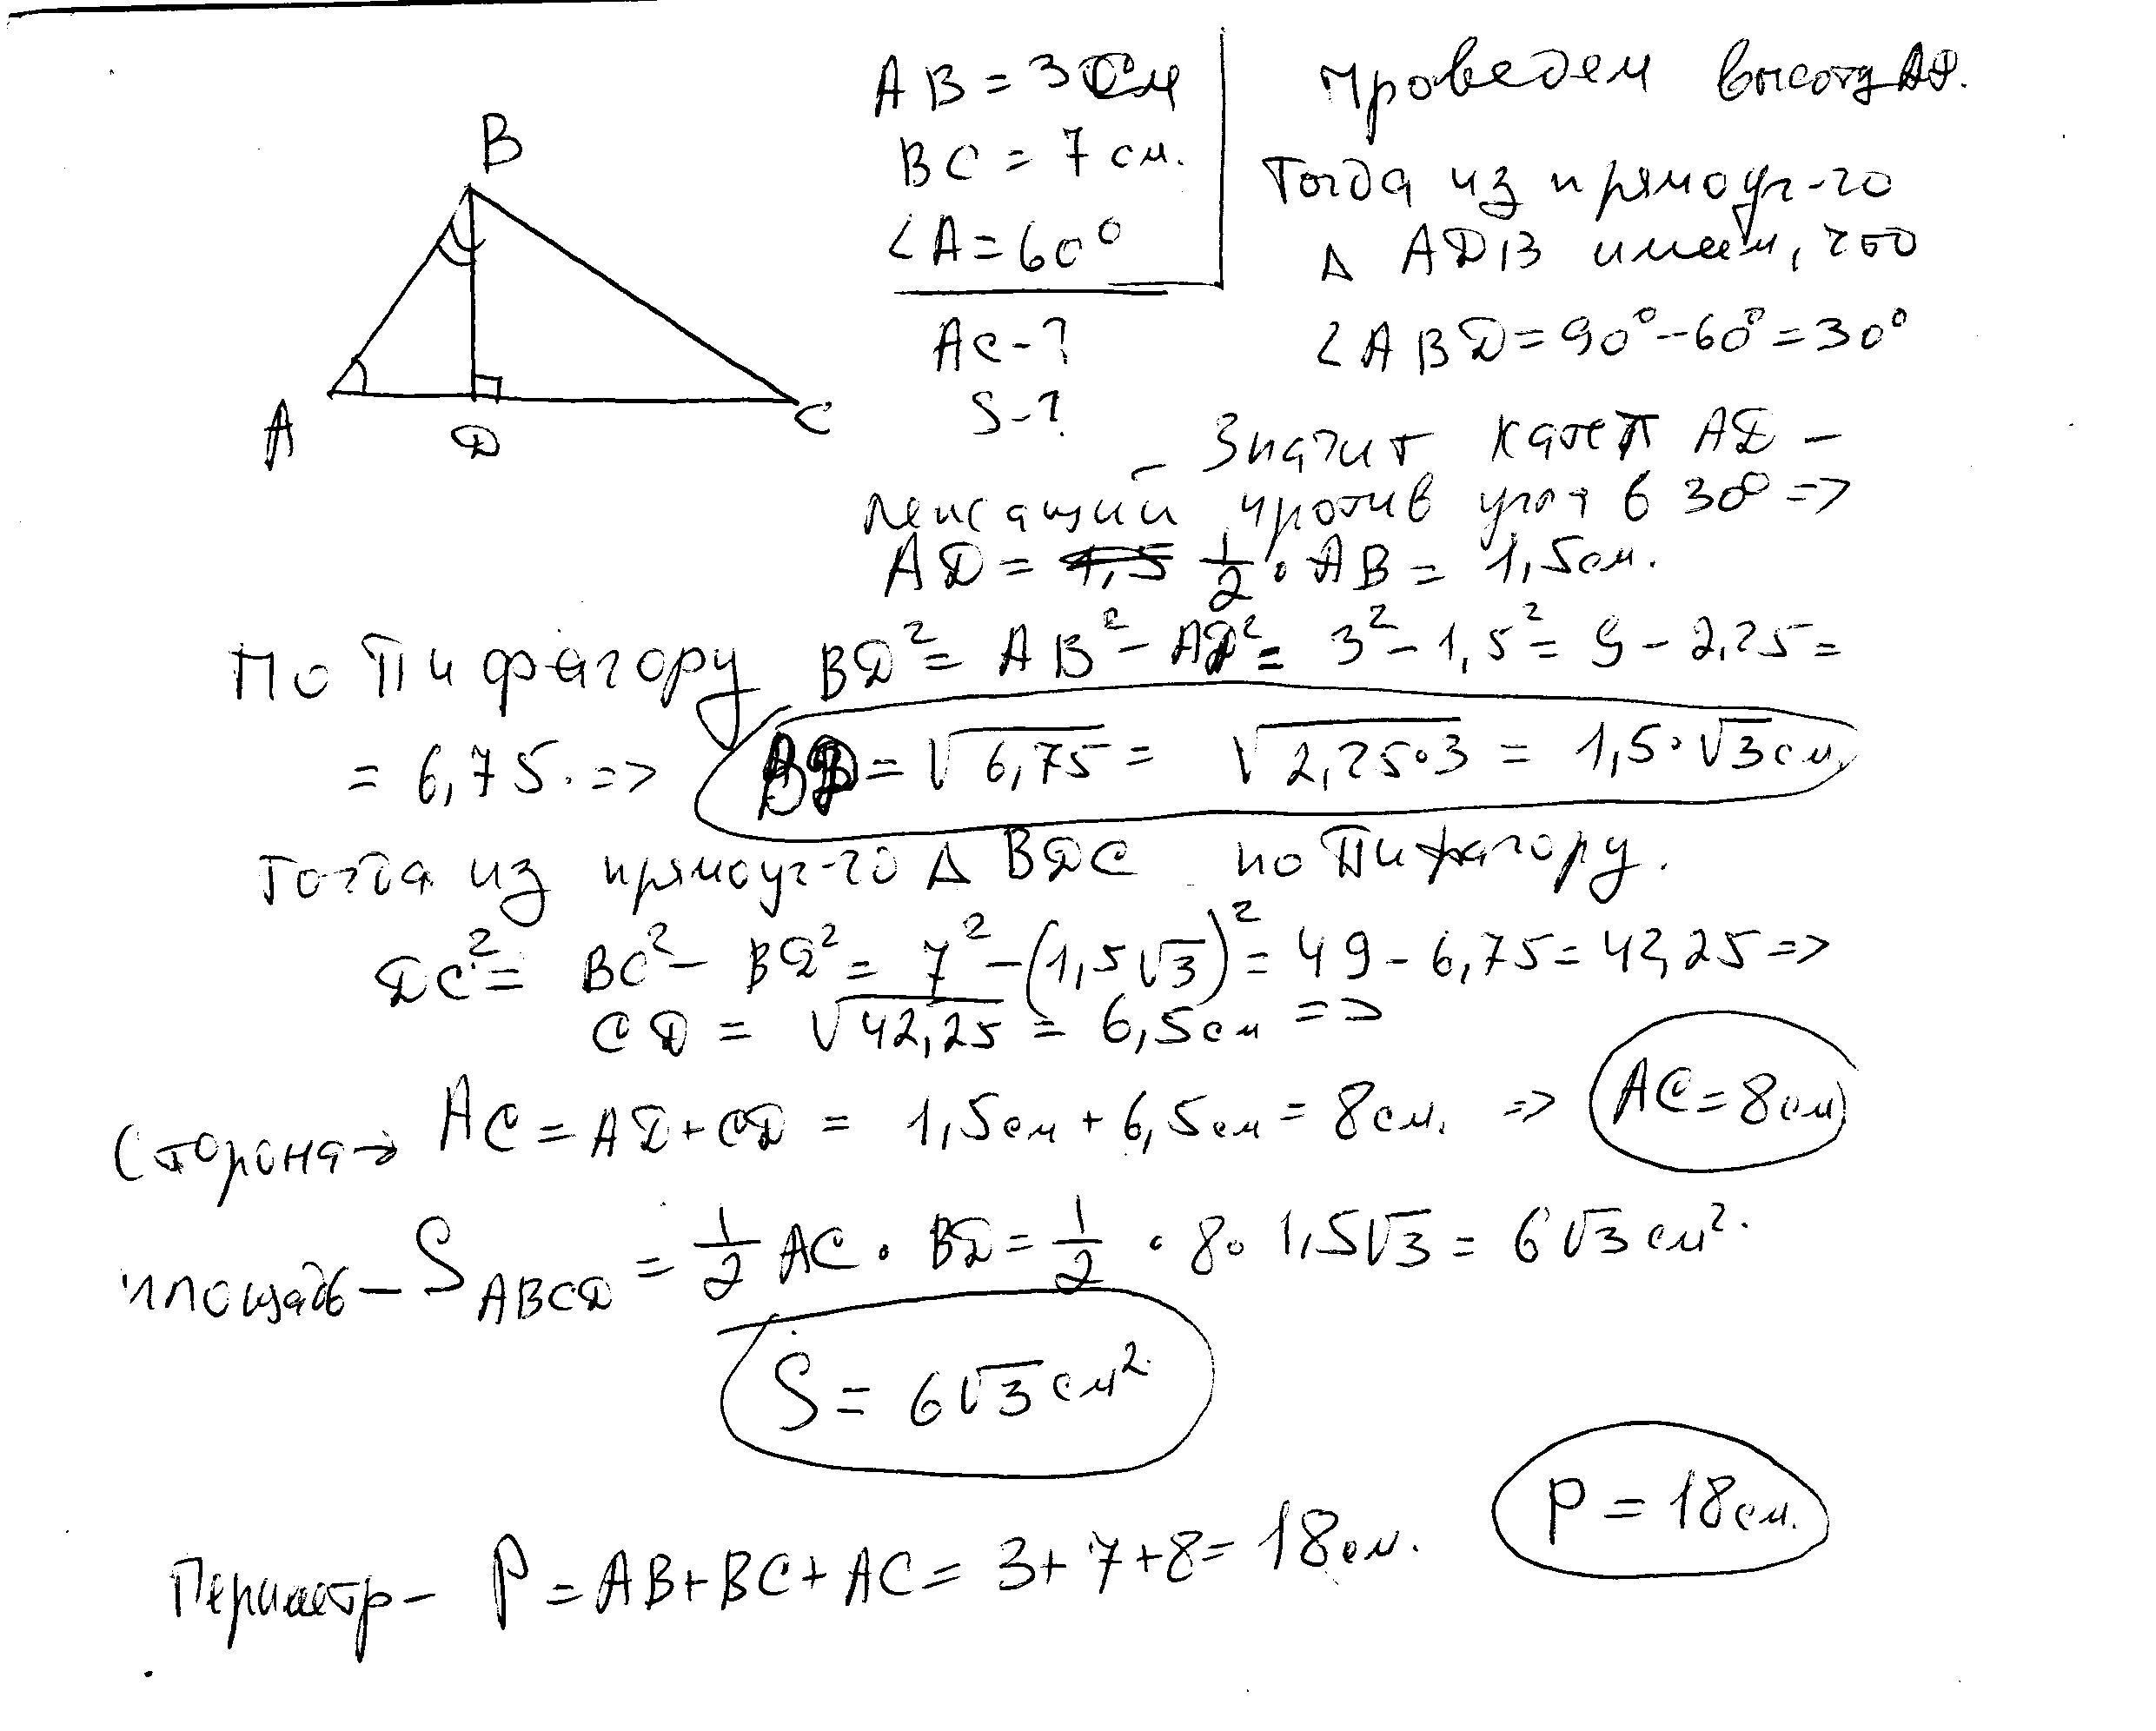 B
A
D
C
AB = 3 см
BC = 7 см.
∠A = 60°
AC - ?
S - ?
Проведем высоту
Тогда из прямоуг-го
Δ ADB имеем, что
∠ABD = 90° - 60° = 30°
Значит катет AD –
лежащий против угла в 30° =>
AD = 1/2 · AB = 1,5 см.
По Пифагору BD² = AB² - AD² = 3² - 1,5² = 9 - 2,25 =
= 6,75. => BD = √6,75 = √2,25·3 = 1,5·√3 см.
Тогда из прямоуг-го Δ BDC по Пифагору.
DC² = BC² - BD² = 7² - (1,5√3)² = 49 - 6,75 = 42,25 =>
CD = √42,25 = 6,5 см =>
Сторона → AC = AD + CD = 1,5 см + 6,5 см = 8 см. => AC = 8 см
площадь – S ABCD = 1/2 AC · BD = 1/2 · 8 · 1,5√3 = 6√3 см².
S = 6√3 см².
P = 18 см.
Периметр – P = AB + BC + AC = 3 + 7 + 8 = 18 см.